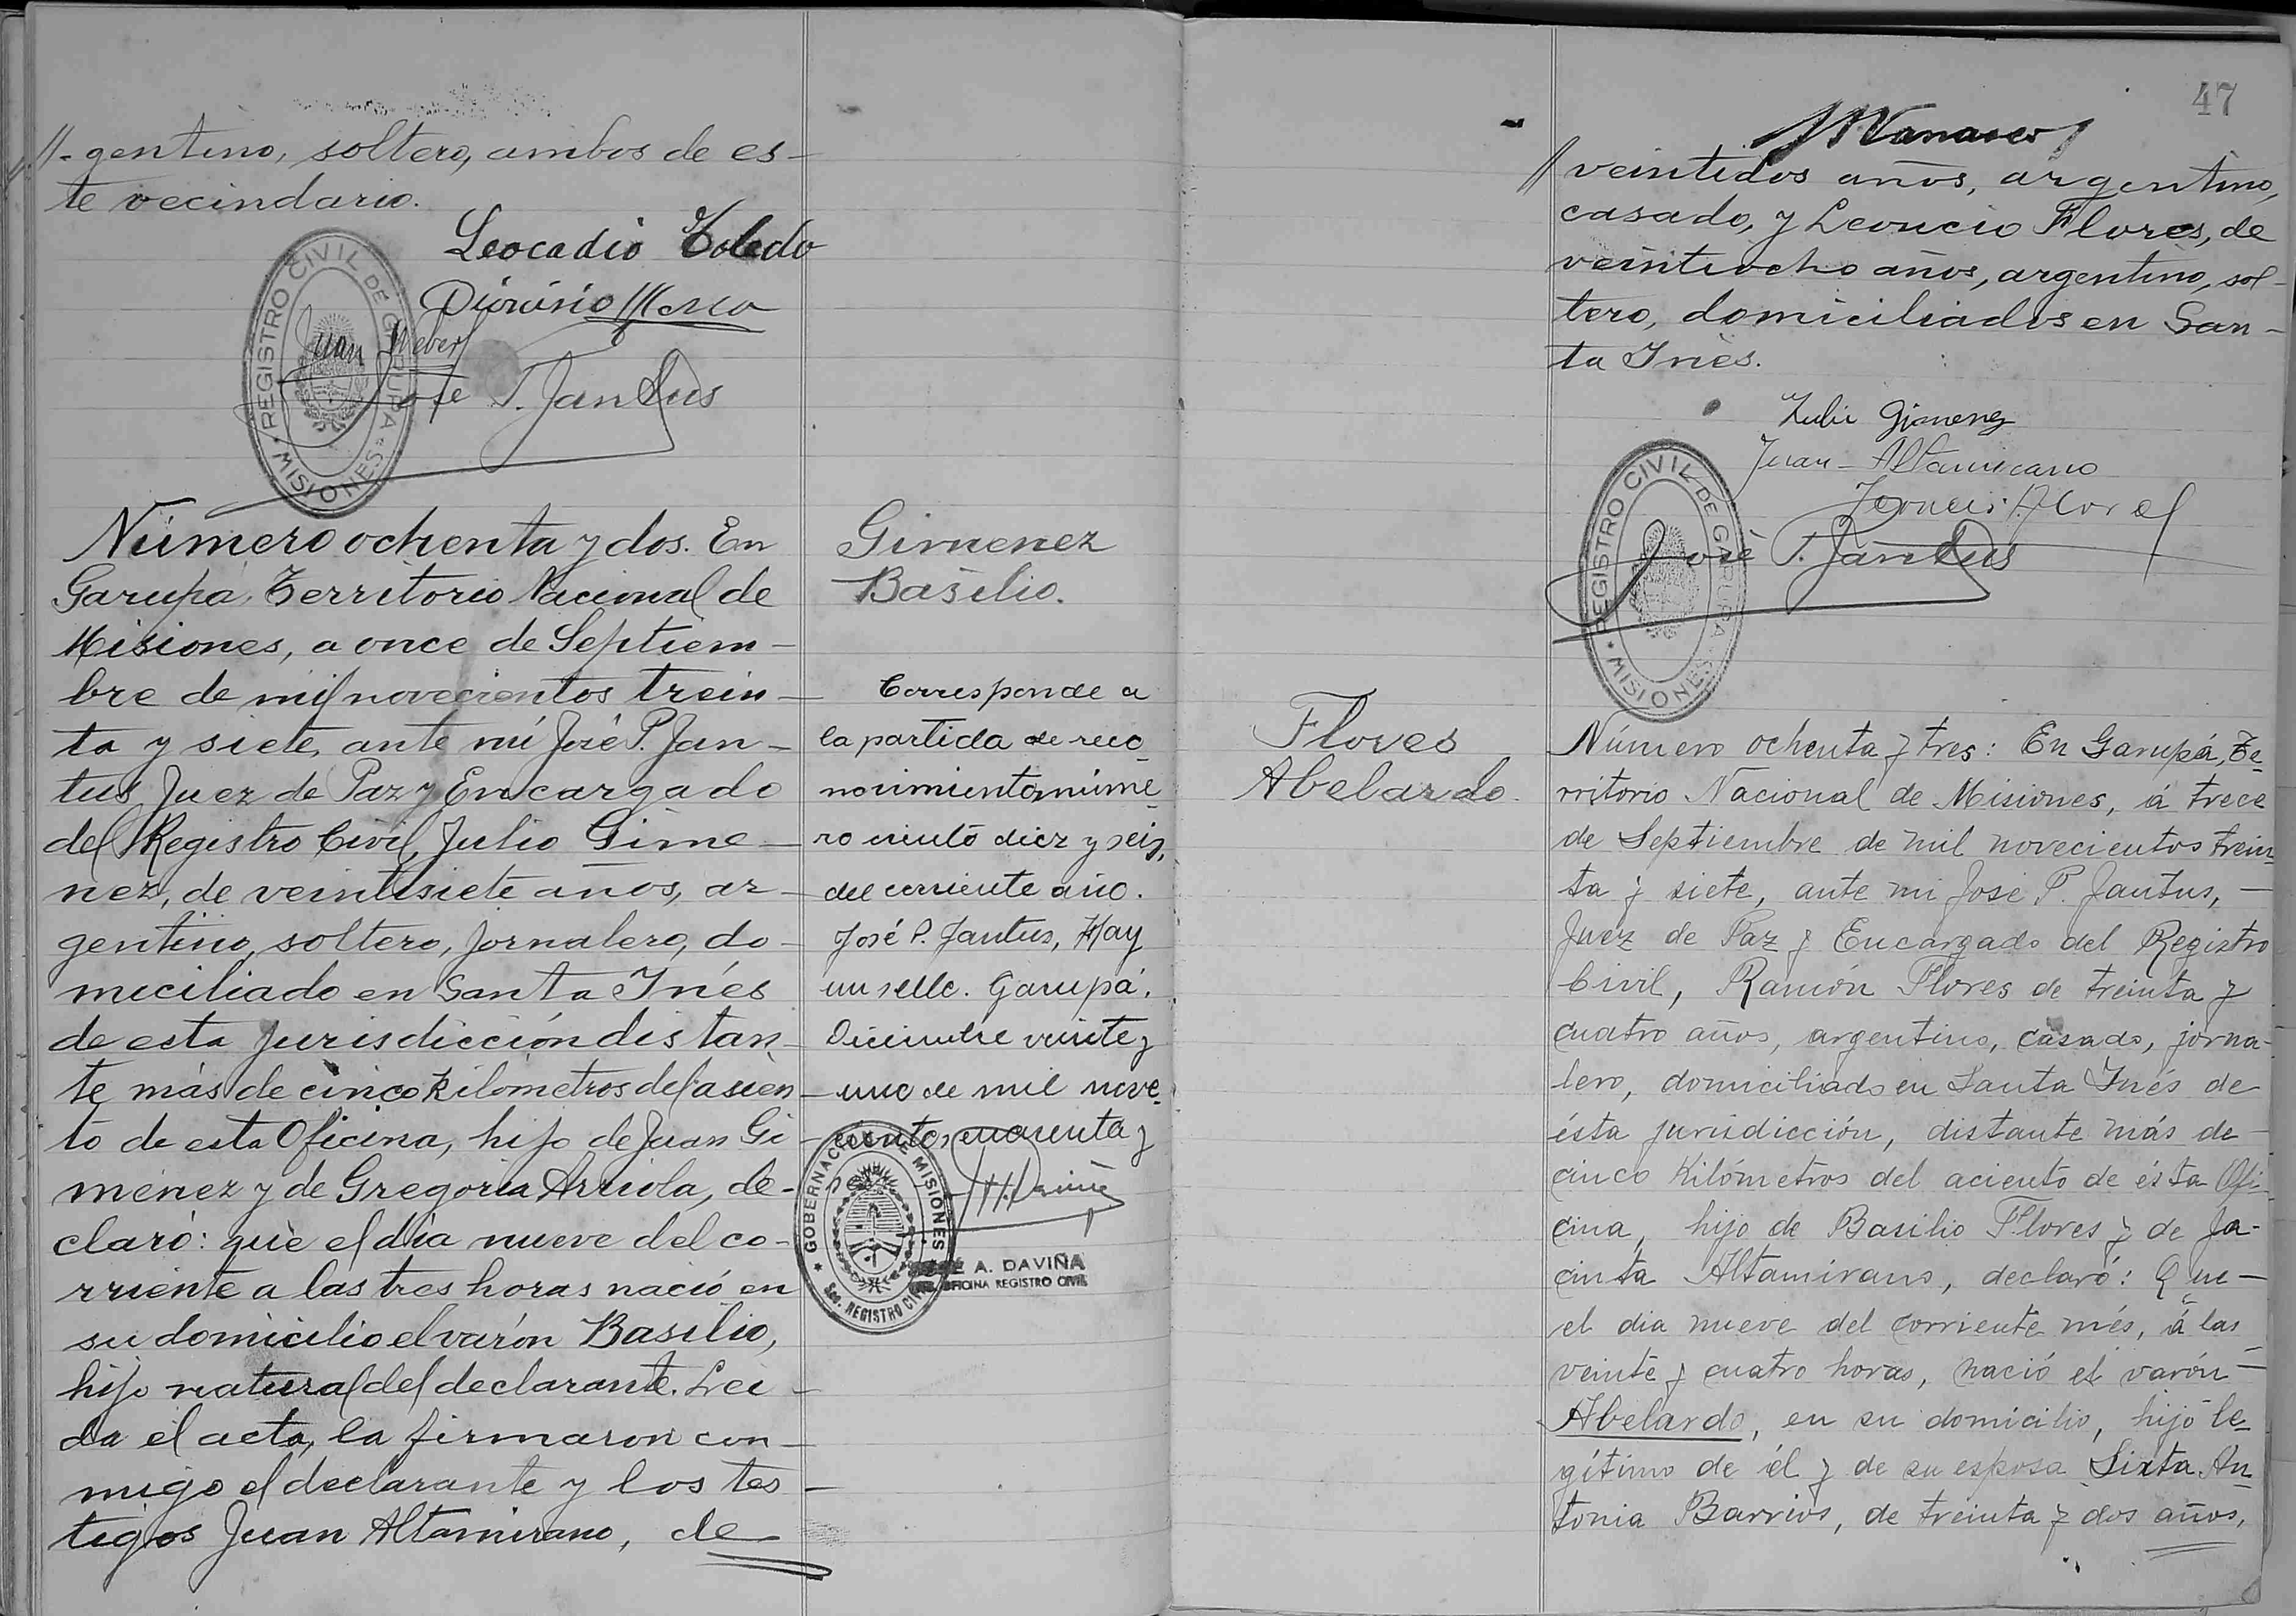 //-gentino, soltero, ambos de es-
te vecindario.
Leocadio Toledo
Dionisio
Juan Weber
José P. Jantus
REGISTRO CIVIL DE GARUPA
MISIONES
Número ochenta y dos. En
Garupa, Territorio Nacional de
Misiones, a once de Septiem-
bre de mil novecientos trein-
ta y siete, ante mí José P. Jan-
tus Juez de Paz y Encargado
del Registro Civil, Julio Gime-
nez, de veintisiete años, ar-
gentino, soltero, jornalero, do-
miciliado en Santa Inés
de esta jurisdicción distan-
te más de cinco kilometros del asien
to de esta Oficina, hijo de Juan Gi-
ménez y de Gregoria Arriola, de-
claró: que el día nueve del co-
rriente a las tres horas nació en
su domicilio el varón Basilio,
hijo natural del declarante. Lei-
da el acta, la firmaron con-
migo el declarante y los tes-
tigos Juan Altamirano, de
Gimenez
Basilio.
Corresponde a
la partida de reco-
nocimiento núme-
ro ciento diez y seis,
del corriente año.
José P. Jantus, Hay
un sello. Garupá,
Diciembre veinte y
uno de mil nove-
cientos cuarenta y
GOBERNACION DE MISIONES
Sec. REGISTRO CIVIL
A. DAVIÑA
OFICINA REGISTRO CIVIL
47
// veintidos años, argentino,
casado, y Leoncio Flores, de
veintiocho años, argentino, sol-
tero, domiciliados en San-
ta Inés.
Julio Gimenez
Juan Altamirano
Leoncio Flores
José P. Jantus
REGISTRO CIVIL DE GARUPA
MISIONES
Flores
Abelardo.
Número ochenta y tres: En Garupá, Te-
rritorio Nacional de Misiones, á trece
de Septiembre de mil novecientos trein
ta y siete, ante mi José P. Jantus,
Juez de Paz y Encargado del Registro
Civil, Ramón Flores de treinta y
cuatro años, argentino, casado, jorna-
lero, domiciliado en Santa Inés de
ésta jurisdicción, distante más de
cinco Kilómetros del aciento de ésta Ofi-
cina, hijo de Basilio Flores y de Ja-
cinta Altamirano, declaró: Que
el dia nueve del corriente més, á las
veinte y cuatro horas, nació el varón
Abelardo, en su domicilio, hijo le-
gítimo de él y de su esposa Sixta An-
tonia Barrios, de treinta y dos años,